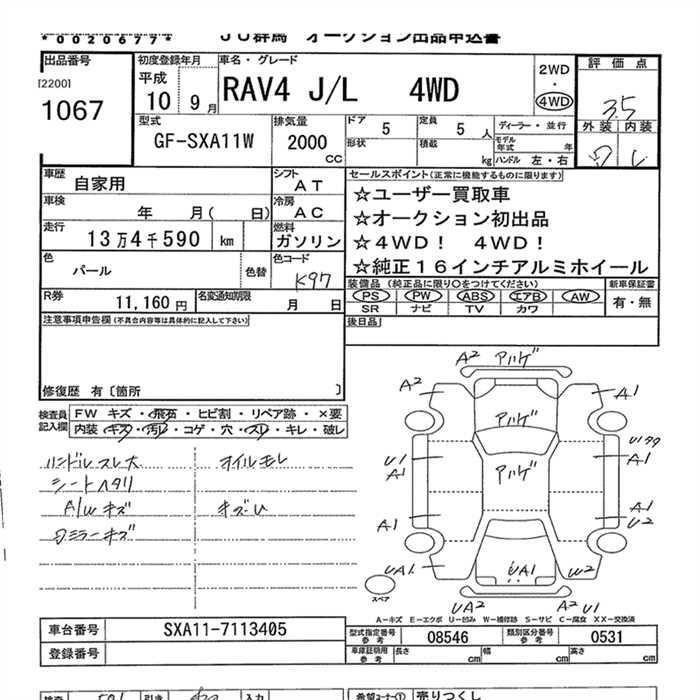 *0020677*
JU群馬 オークション出品申込書
出品番号
[2200]
1067
初度登録年月
平成 10 9月
車名・グレード
RAV4 J/L 4WD
2WD
・
4WD
評価点
3.5
外装 内装
型式
GF-SXA11W
排気量
2000
CC
ドア 5
定員 5 人
形状
積載 kg
ディーラー・並行
モデル年式 年
ハンドル 左・右
車歴
自家用
シフト
AT
車検
年 月( 日)
冷房
AC
走行
13万4千590 km
燃料
ガソリン
色
パール
色替
色コード
K97
R券
11,160円
名変通知期限
月 日
セールスポイント(正常に機能するものに限ります)
☆ユーザー買取車
☆オークション初出品
☆4WD! 4WD!
☆純正16インチアルミホイール
装備品(純正品に限り○をつけてください)
PS PW ABS エアB AW
SR ナビ TV カワ
新車保証書
有・無
後日品
注意事項申告欄(不具合内容等は具体的に記入して下さい)
修復歴 有〔箇所 〕
検査員記入欄
FW キズ・飛石・ヒビ割・リペア跡・×要
内装・キズ・汚レ・コゲ・穴・スレ・キレ・破レ
ハンドルスレ大 オイルモレ
シートヘタリ
A/Wキズ
ロミラーキズ
A2 アハゲ
A2 A1
アハゲ
U1 A1
アハゲ
A1
A1 A1
U2
UA1 UA1 W2
UA2 A2 U1
スペア
A－キズ E－エクボ U－凹み W－補修跡 S－サビ C－腐食 XX－交換済
車台番号 SXA11-7113405
登録番号
型式指定番号 参考 08546
類別区分番号 参考 0531
車庫証明用 参考 長さ cm 幅 cm 高さ cm
希望コーナー① 売りつくし